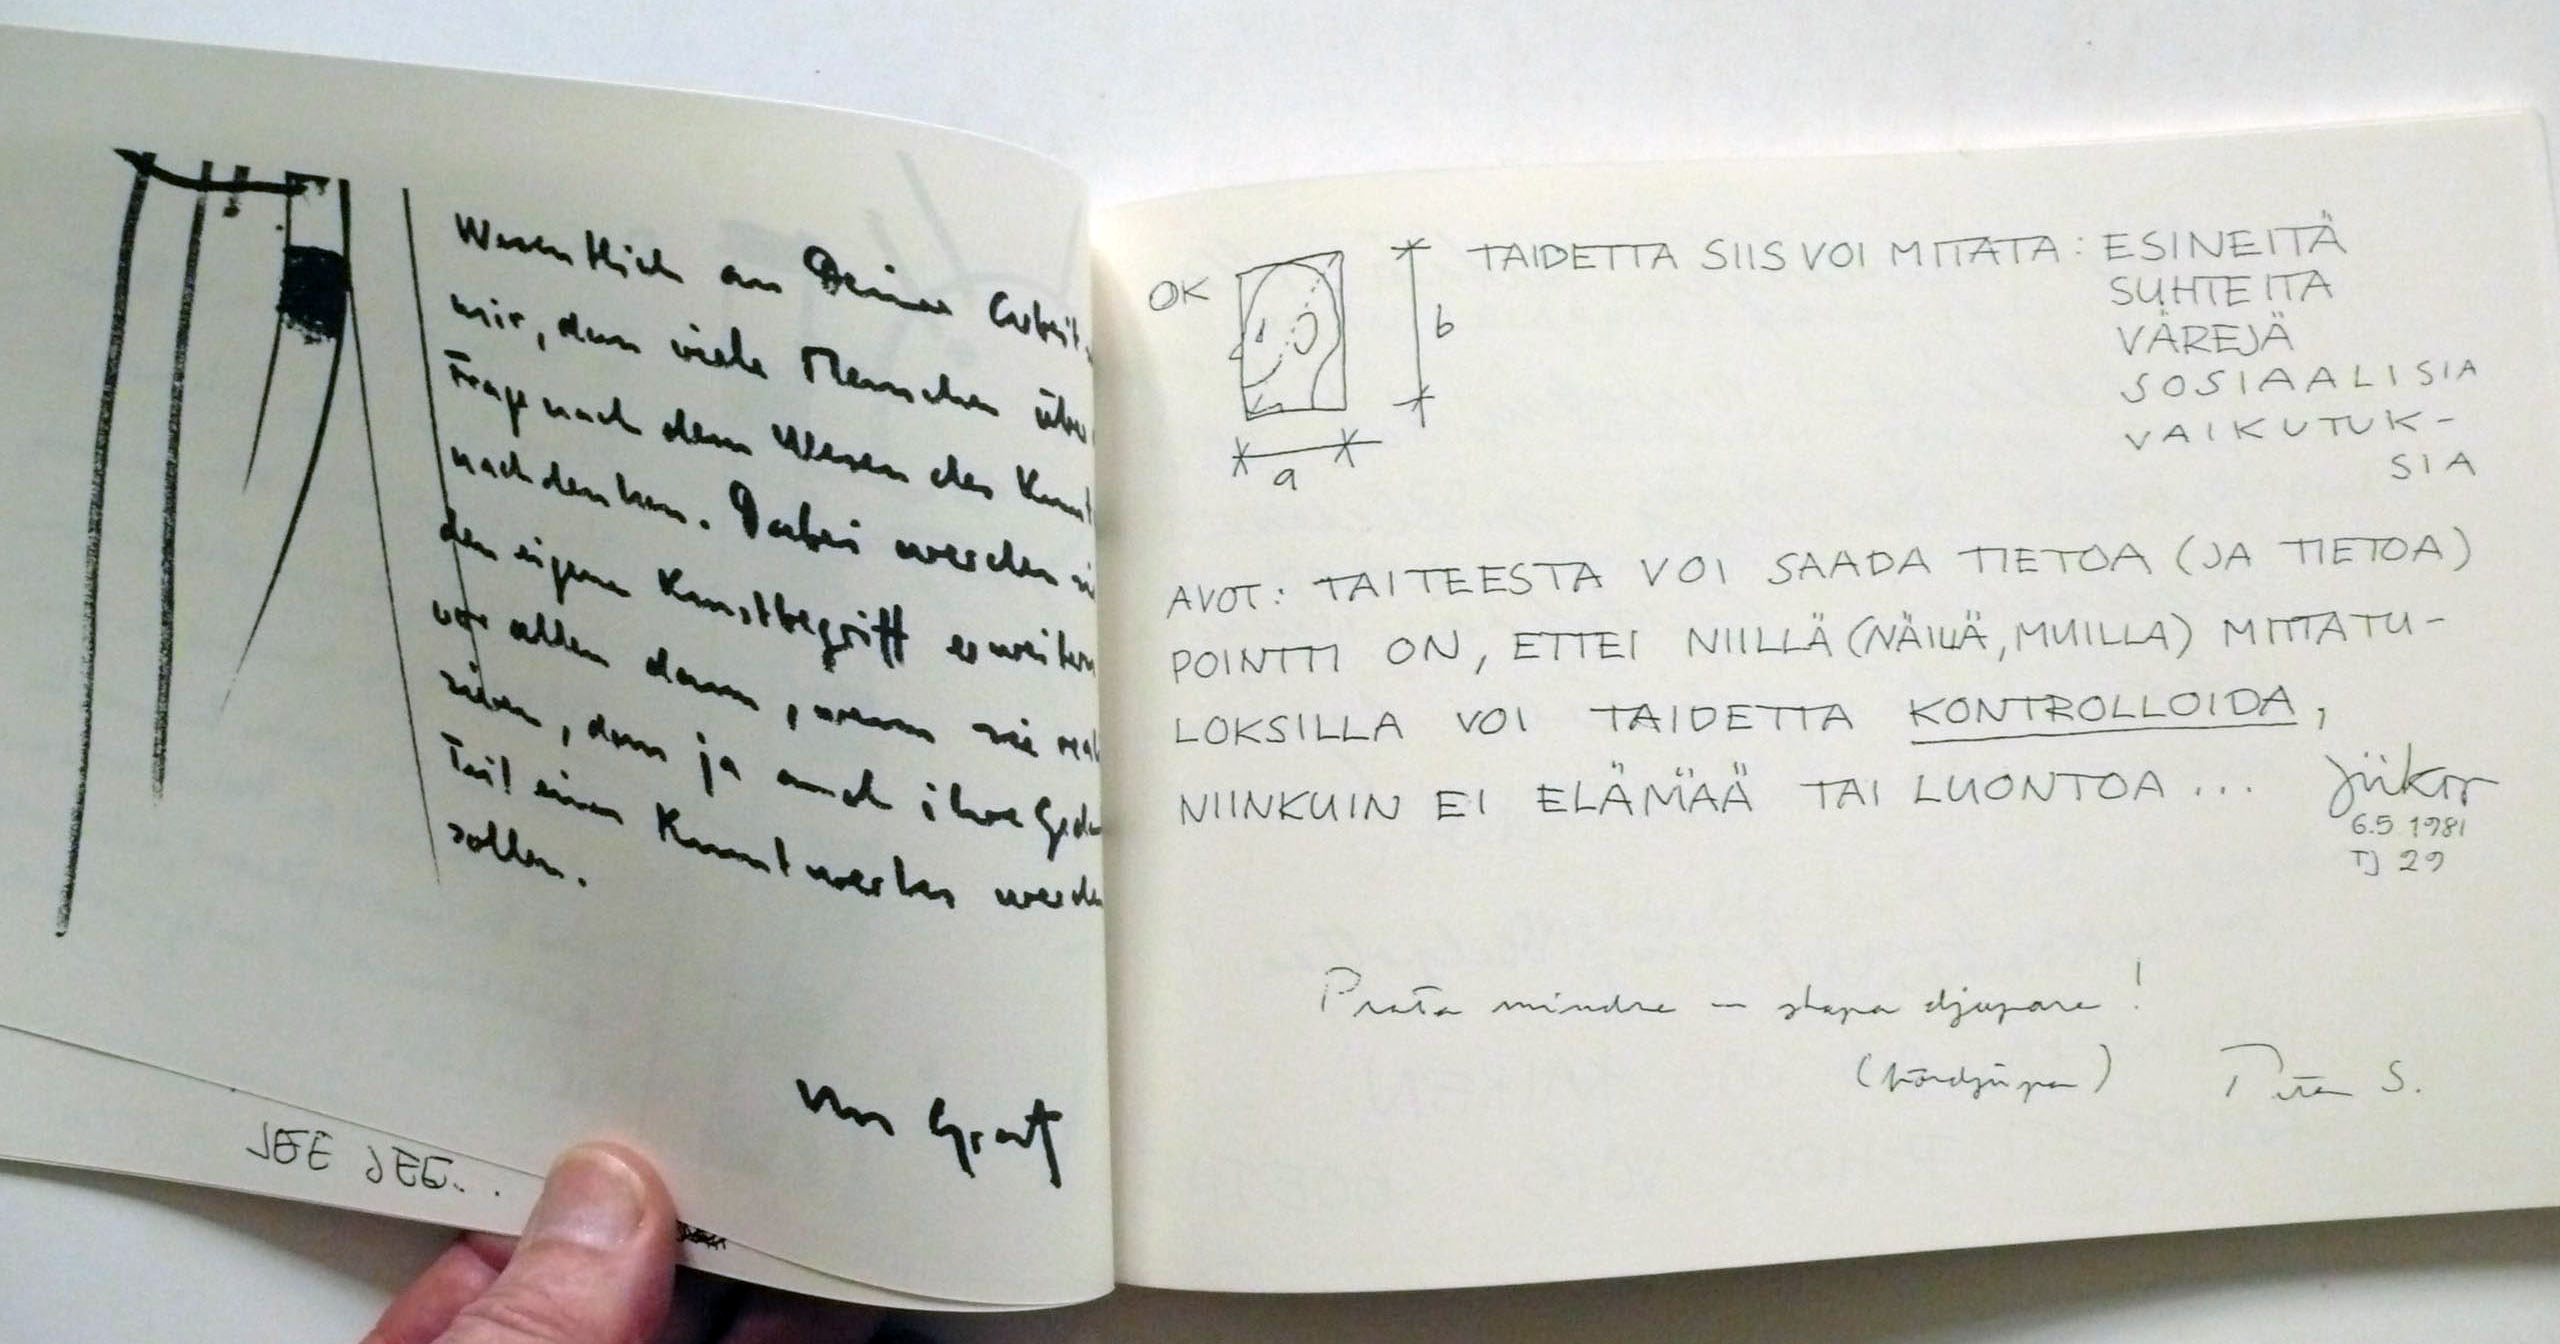 Wesentlich an Deiner Arbeit
mir, dass viele Menschen über
Frage nach dem Wesen der Kunst
nachdenken. Dabei werden sie
den eigenen Kunstbegriff erweitern
vor allem dann, wenn sie
dass ja auch ihre
Teil eines Kunstwerkes werden
sollen.
JEE JEE...
OK
b
a
TAIDETTA SIIS VOI MITATA: ESINEITÄ
SUHTEITA
VÄREJÄ
SOSIAALISIA
VAIKUTUK-
SIA
AVOT: TAITEESTA VOI SAADA TIETOA (JA TIETOA)
POINTTI ON, ETTEI NIILLÄ (NÄILLÄ, MUILLA) MITTATU-
LOKSILLA VOI TAIDETTA KONTROLLOIDA,
NIINKUIN EI ELÄMÄÄ TAI LUONTOA...
6.5 1981
TJ 29
Prata mindre – skapa djupare!
(fördjupa)
S.